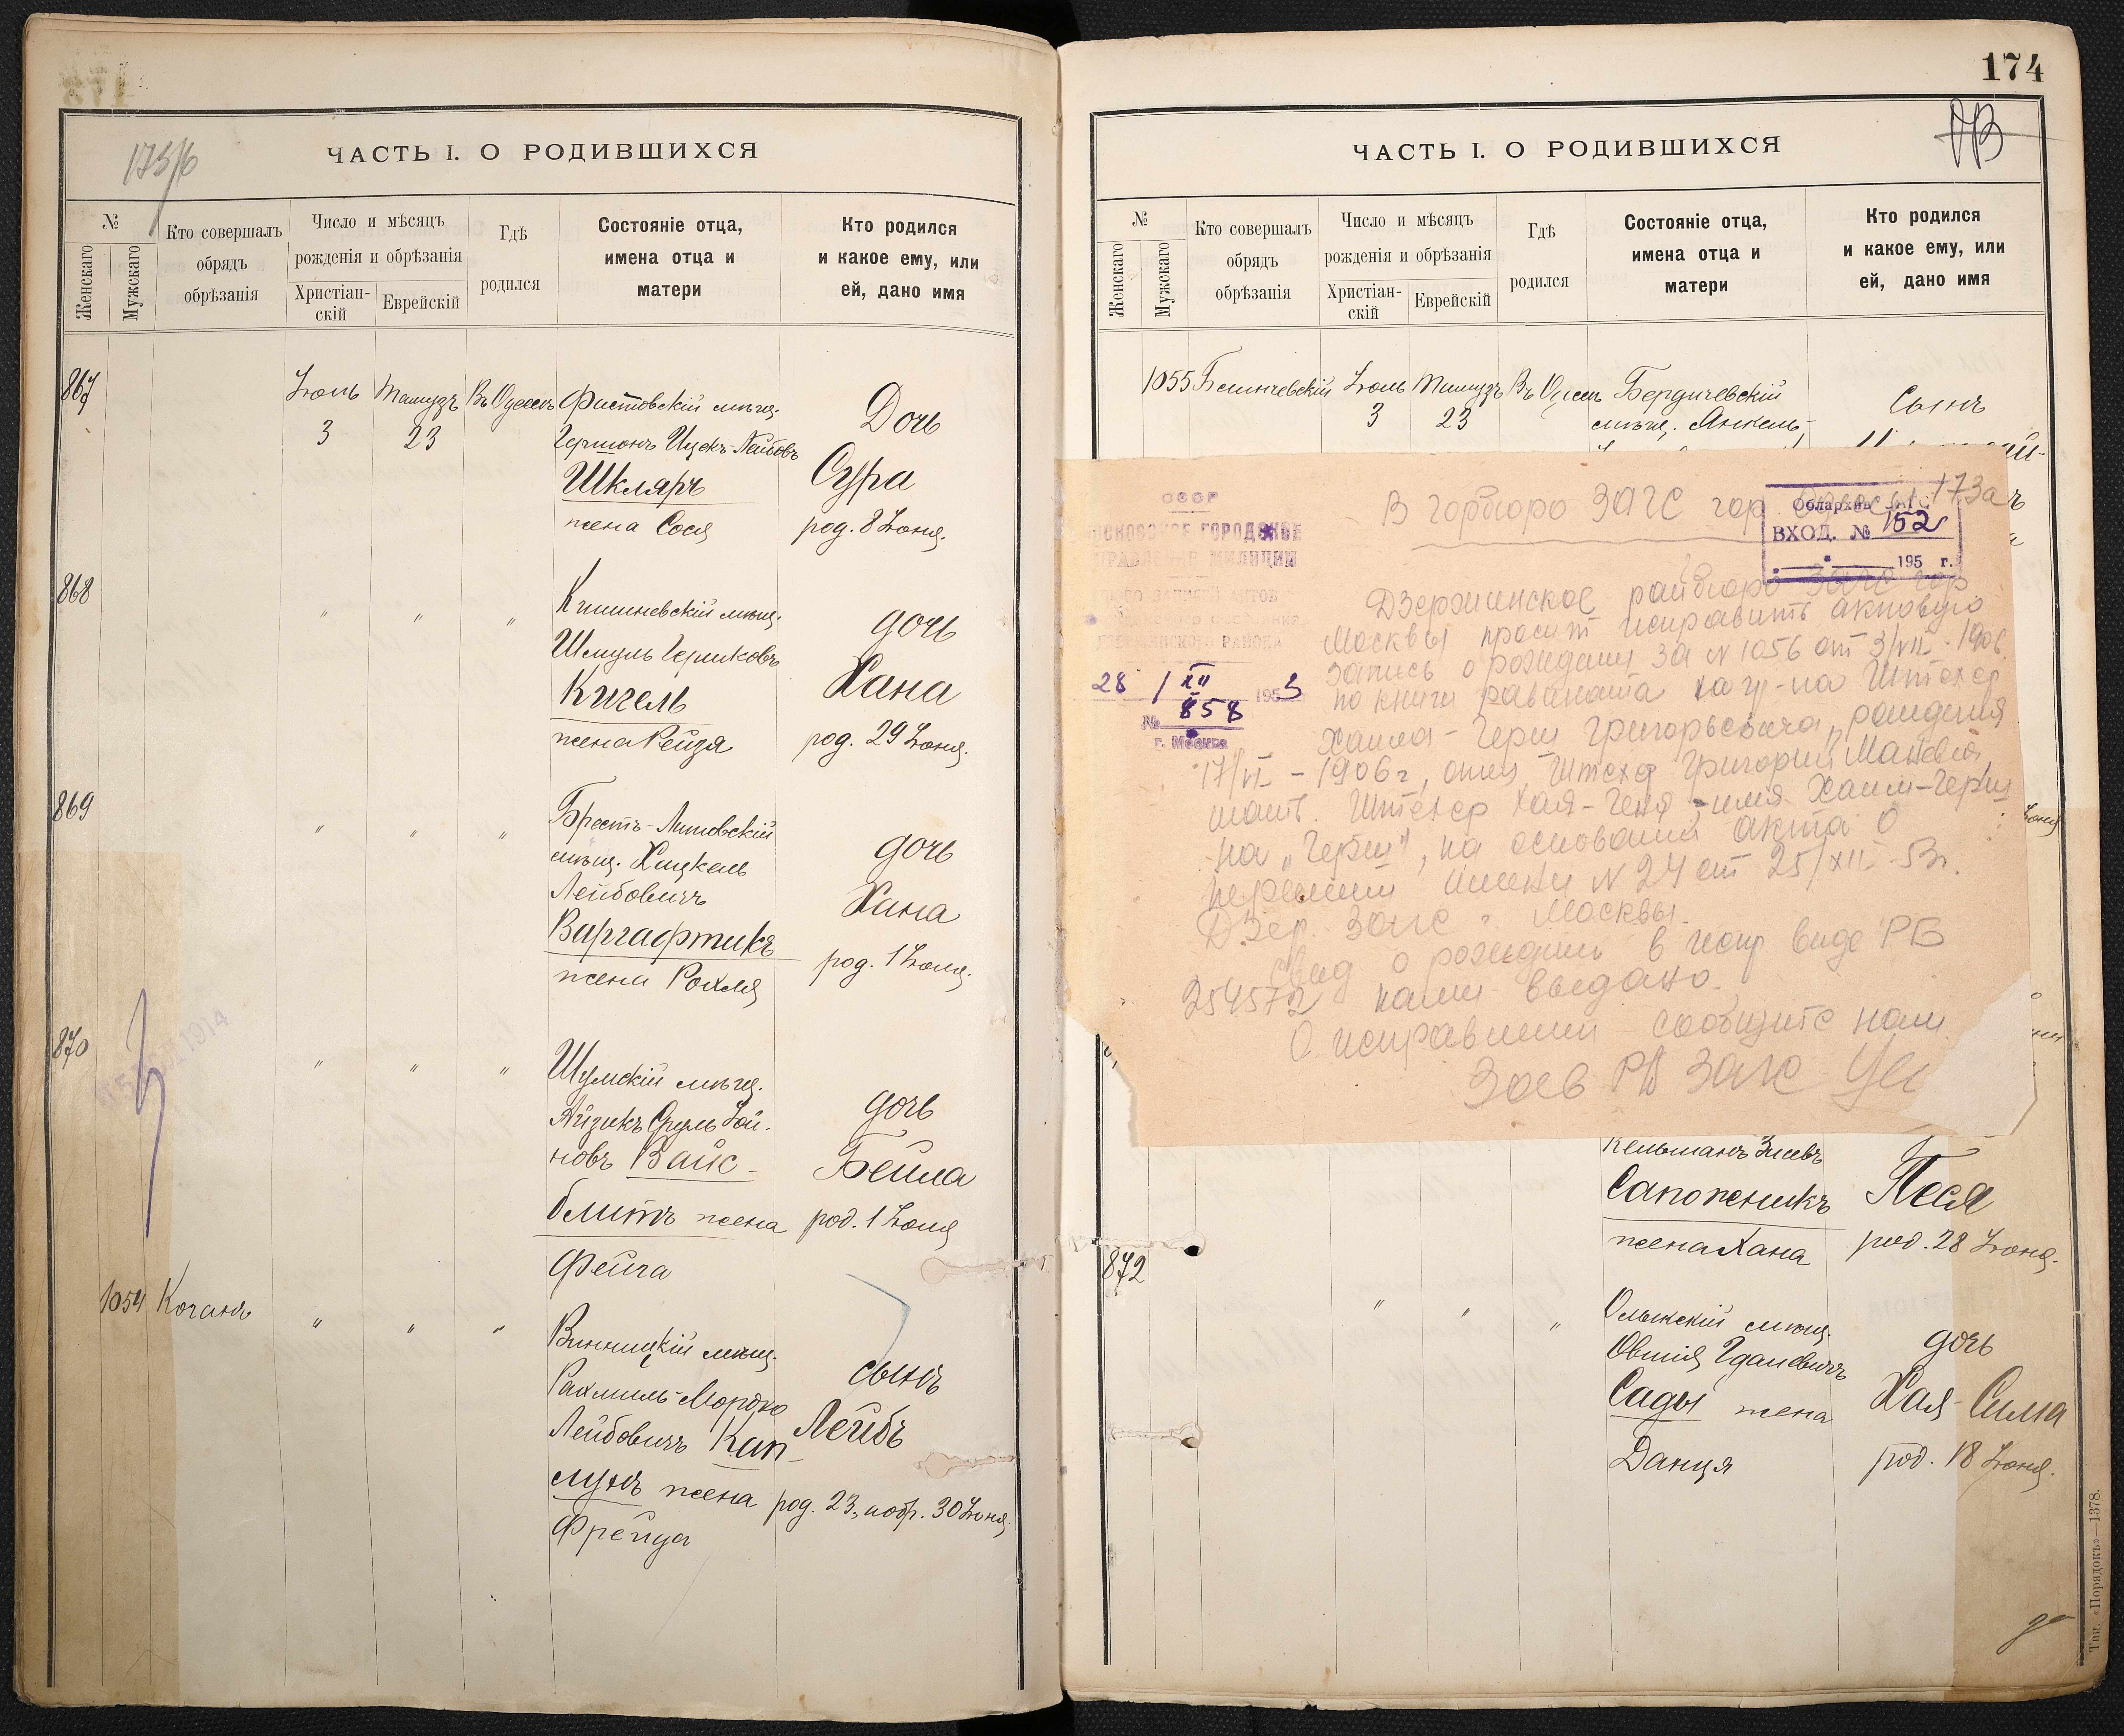 173/6
ЧАСТЬ I. О РОДИВШИХСЯ
№
Женскаго
Мужскаго
Кто совершалъ
обрядъ
обрѣзанія
Число и мѣсяцъ
рожденія и обрѣзанія
Христіан-
скій
Еврейскій
Гдѣ
родился
Состояніе отца,
имена отца и
матери
Кто родился
и какое ему, или
ей, дано имя
867
Іюль
3
Тамузъ
23
Въ Одессѣ
Фастовскій мѣщ.
Гершонъ Ицекъ-Лейбовъ
Шкляръ
жена Сося
Дочь
Сура
род. 8 Іюня.
868
" " "
Кишиневскій мѣщ.
Шмуль Гершковъ
Кигель
жена Рейзя
дочь
Хана
род. 29 Іюня.
869
" " "
Брестъ-Литовскій
мѣщ. Хацкель
Лейбовичъ
Варгафтикъ
жена Рохля
дочь
Хана
род. 1 Іюля.
870
1914
" " "
Шумскій мѣщ.
Айзикъ Сруль Іой-
новъ Вайс-
блитъ жена
Фейга
дочь
Бейла
род. 1 Іюля
1054
Коганъ
" " "
Винницкій мѣщ.
Рахмиль-Мордко
Лейбовичъ Кап-
лунъ жена
Фрейда
сынъ
Лейбъ
род. 23, нобр. 30 Іюня.
174
ЧАСТЬ I. О РОДИВШИХСЯ
№
Женскаго
Мужскаго
Кто совершалъ
обрядъ
обрѣзанія
Число и мѣсяцъ
рожденія и обрѣзанія
Христіан-
скій
Еврейскій
Гдѣ
родился
Состояніе отца,
имена отца и
матери
Кто родился
и какое ему, или
ей, дано имя
1055
Іюль
3
Тамузъ
23
Въ Одессѣ
Бердичевскій
мѣщ. Янкель-
Сынъ
СССР
МОСКОВСКОЕ ГОРОДСКОЕ
УПРАВЛЕНИЕ МИЛИЦИИ
ДЗЕРЖИНСКОГО РАЙОНА
28 / XII 1953
№ 858
г. Москва
173а
В горбюро ЗАГС гор. Одессы
Облархив
ВХОД. № 152
195 г.
Дзержинское райбюро ЗАГС гор
Москвы просит исправить актовую
запись о рождении за N 1056 от 3/VII-1906
по книги равината на гр-на Штехер
Хаима-Герш Григорьевича, рождения
17/VI-1906 г, отец Штехер Григорий
мать Штехер Хая-Геня, имя Хаим-Герш
на "Герш", на основании акта о
перемене имени N 24 от 25/XII-53г.
Дзер. ЗАГС г Москвы.
Свид о рождении в испр виде РБ
254572 нами выдано.
О исправлении сообщите нам
Зав РБ ЗАГС
Кельманъ
Сапожникъ
жена Хана
Песя
род. 28 Іюня.
872
" " "
Олыкскій мѣщ.
Овшія Гдалевичъ
Сады жена
Данця
дочь
Хая-Сима
род. 18 Іюня.
Тип. «Порядокъ»—1378.